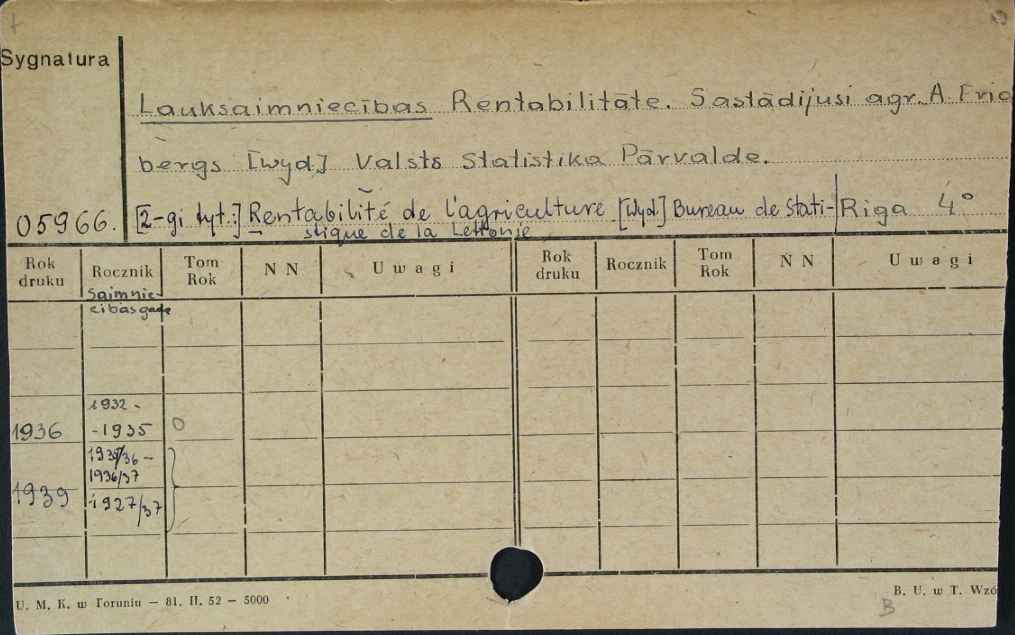 Sygnatura
Lauksaimniecības Rentabilitāte. Sastādijusi agr. A. Frid
bergs [wyd.] Valsts Statistika Pārvalde.
05966. [2-gi tyt.:] Rentabilité de l'agriculture [Wyd.] Bureau de Stati- Riga 4°
stique de la Lettonie
Rok druku Rocznik Tom Rok N N Uwagi Rok druku Rocznik Tom Rok N N Uwagi
Saimnie-
cibas gada
1932 -
1936 - 1935 0
1935/36 -
1936/37
1939 i 1927/37
U. M. K. w Toruniu — 81. II. 52 — 5000
B. U. w T. Wzó
B